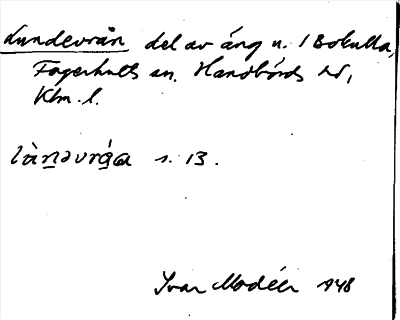 Lundevrån del av äng u. 1 Bokulla,
Fagerhults sn. Handbörds hd,
Klm. l.
s. 13.
Ivar Modéer 1948